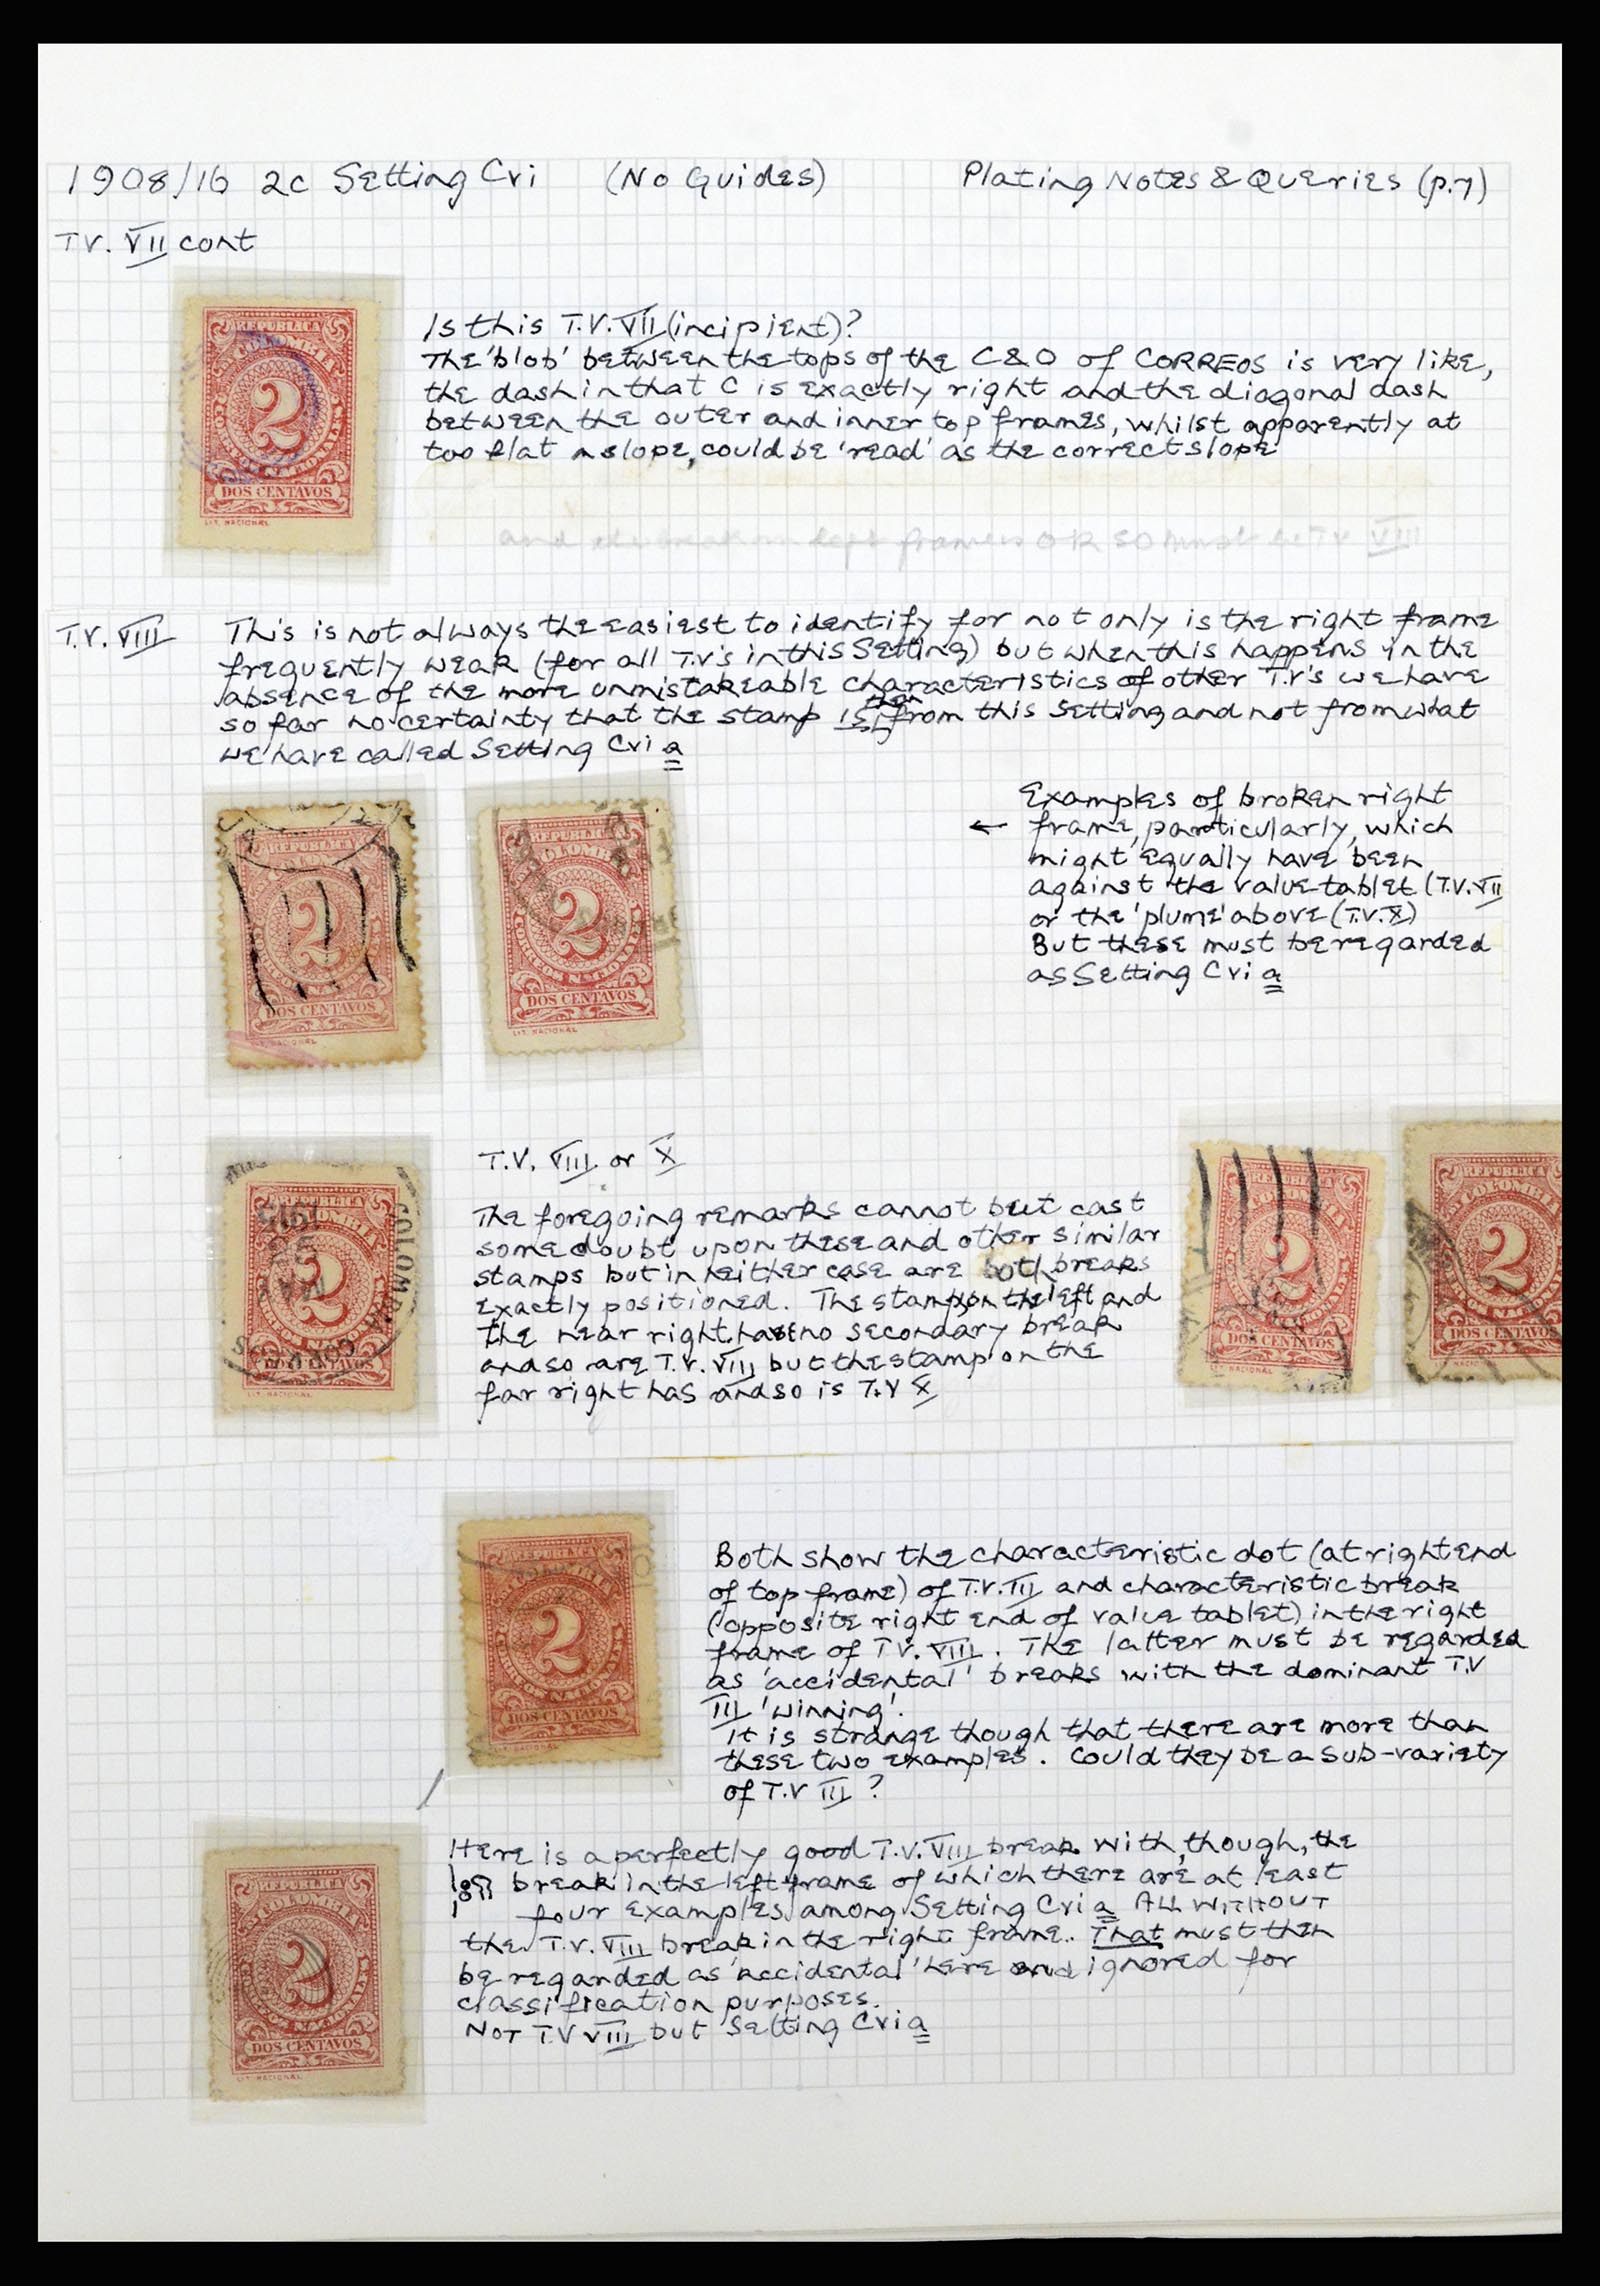 1908/16 2c Setting Cvi (No Guides) Plating Notes & Queries (p.7)
T.V. VII cont
REPUBLICA
COLOMBIA
2
CORREOS NACIONALES
DOS CENTAVOS
LIT. NACIONAL
Is this T.V. VII (incipient)?
The 'blob' between the tops of the C & O of CORREOS is very like,
the dash in that C is exactly right and the diagonal dash
between the outer and inner top frames, whilst apparently at
too flat a slope, could be 'read' as the correct slope
and the break in left frame is OK so must be TV VIII
T.V. VIII This is not always the easiest to identify for not only is the right frame
frequently weak (for all T.V's in this Setting) but when this happens in the
absence of the more unmistakeable characteristics of other T.V's we have
so far no certainty that the stamp is then from this Setting and not from what
we have called Setting Cvi a
REPUBLICA
COLOMBIA
2
DOS CENTAVOS
LIT. NACIONAL
REPUBLICA
COLOMBIA
2
CORREOS NACIONALES
DOS CENTAVOS
LIT. NACIONAL
Examples of broken right
← frame, particularly, which
might equally have been
against the value tablet (T.V. VII
or the 'plume' above (T.V. X)
But these must be regarded
as Setting Cvi a
REPUBLICA
COLOMBIA
2
1915
COLOMBIA
DOS CENTAVOS
LIT. NACIONAL
T.V. VIII or X
The foregoing remarks cannot but cast
some doubt upon these and other similar
stamps but in neither case are both breaks
exactly positioned. The stamps on the left and
the near right have no secondary break
and so are T.V. VIII but the stamp on the
far right has and so is T.V X
REPUBLICA
COLOMBIA
2
DOS CENTAVOS
LIT. NACIONAL
REPUBLICA
COLOMBIA
2
DOS CENTAVOS
REPUBLICA
COLOMBIA
2
CORREOS NACIONALES
DOS CENTAVOS
LIT. NACIONAL
Both show the characteristic dot (at right end
of top frame) of T.V. III and characteristic break
(opposite right end of value tablet) in the right
frame of T.V. VIII. The latter must be regarded
as 'accidental' breaks with the dominant T.V
III 'winning'.
It is strange though that there are more than
these two examples. Could they be a sub-variety
of T.V III?
REPUBLICA
COLOMBIA
2
DOS CENTAVOS
LIT. NACIONAL
Here is a perfectly good T.V. VIII break with, though, the
break in the left frame of which there are at least
four examples among Setting Cvi a ALL WITHOUT
the T.V. VIII break in the right frame. That must then
be regarded as 'accidental' here and ignored for
classification purposes.
NOT T.V VIII but Setting Cvi a